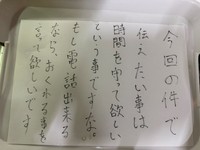 今回の件で
伝えたい事は
時間を守って欲しい
という事ですな。
もし電話出来る
なら、おくれる事を
言て欲しいです